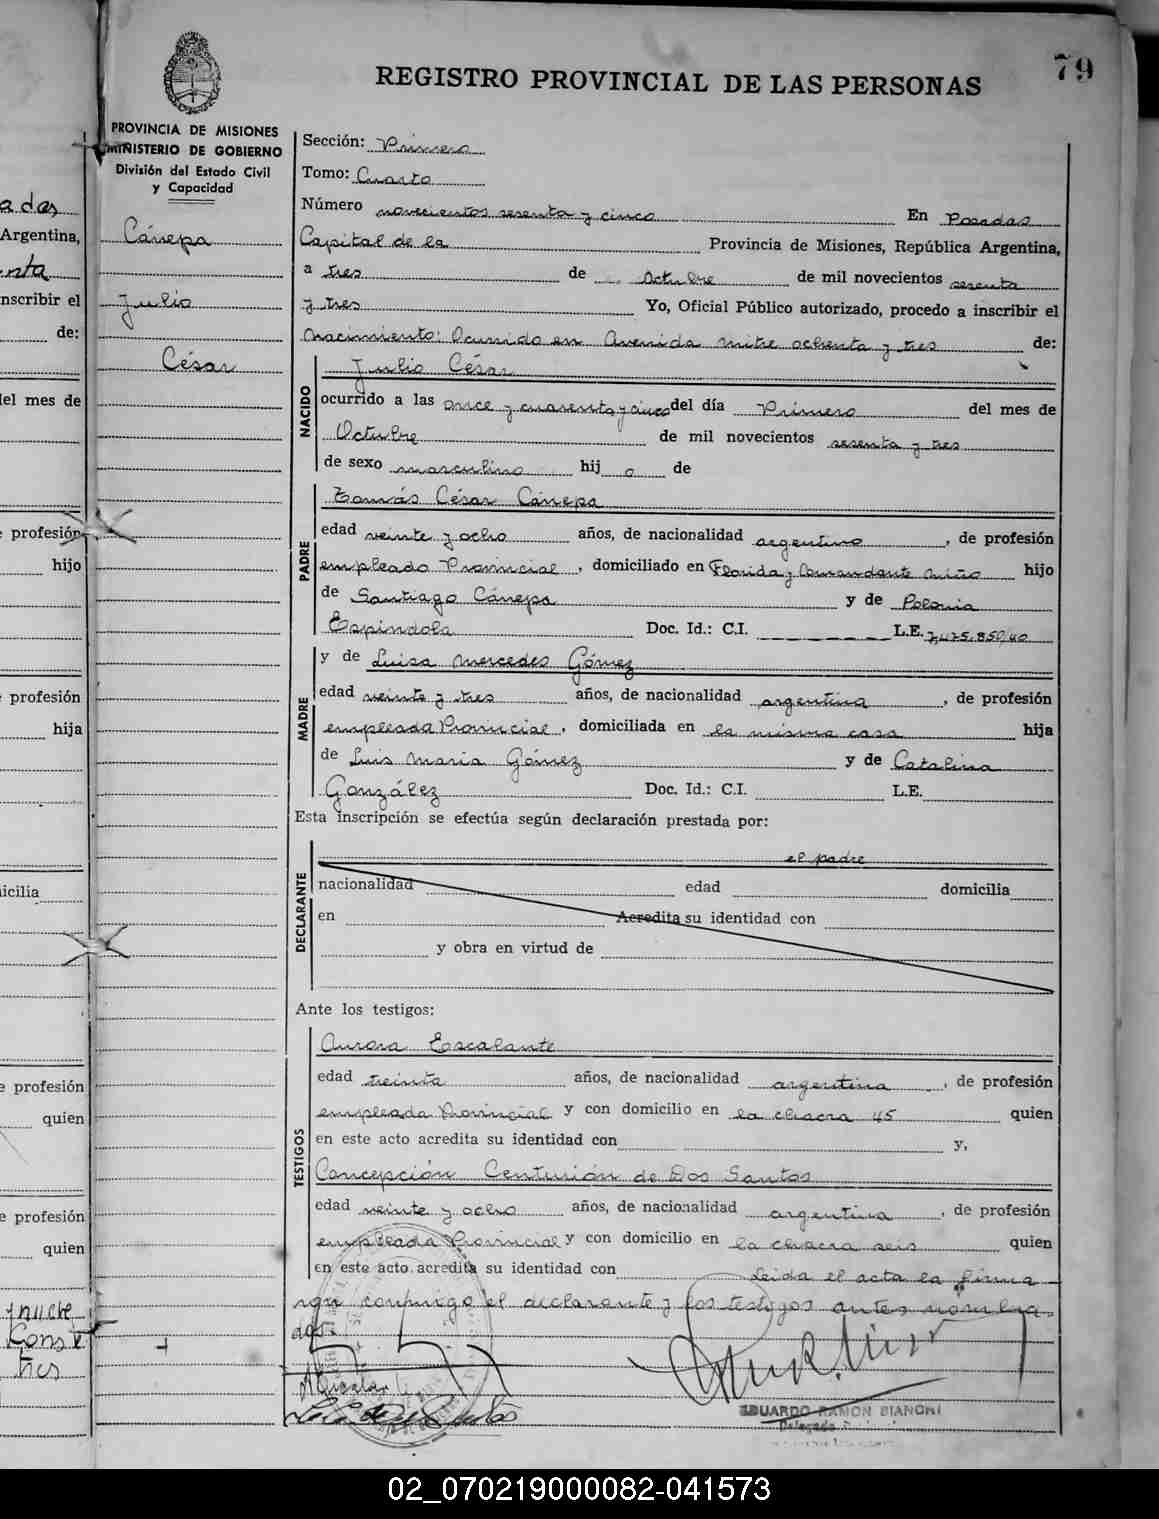 79
REGISTRO PROVINCIAL DE LAS PERSONAS
PROVINCIA DE MISIONES
MINISTERIO DE GOBIERNO
División del Estado Civil
y Capacidad
Cánepa
Julio
César
Sección: Primero
Tomo: Cuarto
Número novecientos sesenta y cinco En Posadas
Capital de la Provincia de Misiones, República Argentina,
a tres de Octubre de mil novecientos sesenta
y tres Yo, Oficial Público autorizado, procedo a inscribir el
nacimiento: Ocurrido en Avenida mitre ochenta y tres de:
NACIDO
Julio César
ocurrido a las once y cuarenta y cinco del día Primero del mes de
Octubre de mil novecientos sesenta y tres
de sexo masculino hij o de
PADRE
Tomás César Cánepa
edad veinte y ocho años, de nacionalidad argentino, de profesión
empleado Provincial, domiciliado en Florida y Comandante Miño hijo
de Santiago Cánepa y de Polonia
Espíndola Doc. Id.: C.I. L.E.
MADRE
y de Luisa Mercedes Gómez
edad veinte y tres años, de nacionalidad argentina, de profesión
empleada Provincial, domiciliada en la misma casa hija
de Luis María Gómez y de Catalina
González Doc. Id.: C.I. L.E.
Esta inscripción se efectúa según declaración prestada por:
DECLARANTE
el padre
nacionalidad edad domicilia
en Acredita su identidad con
y obra en virtud de
Ante los testigos:
TESTIGOS
Aurora Escalante
edad treinta años, de nacionalidad argentina, de profesión
empleada Provincial y con domicilio en la chacra 45 quien
en este acto acredita su identidad con y,
Concepción Centurión de Dos Santos
edad veinte y ocho años, de nacionalidad argentina, de profesión
empleada Provincial y con domicilio en la chacra seis quien
en este acto acredita su identidad con Leida el acta la firma
ron conmigo el declarante y los testigos antes nombra
dos.
EDUARDO RAMON BIANCHI
Delegado
adas
Argentina,
enta
nscribir el
de:
del mes de
e profesión
hijo
profesión
hija
icilia
e profesión
quien
e profesión
quien
tres
02_070219000082-041573